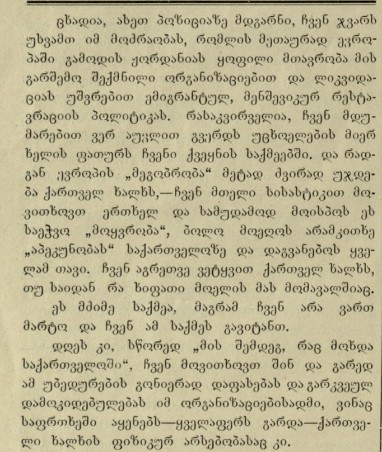 ცხადია, ასეთ პოზიციაზე მდგარნი, ჩვენ ჯვარს
უსვამთ იმ მოძრაობას, რომლის მეთაურად ევრო-
პაში გამოდის ჟორდანიას ყოფილი მთავრობა მის
გარშემო შექმნილი ორგანიზაციებით და ლიკვიდა-
ციას უშვრებით ემიგრანტულ, მენშევიკურ რესტა-
ვრაციის პოლიტიკას. რასაკვირველია, ჩვენ მდუ-
მარებით ვერ აუვლით გვერდს უცხოელების მიერ
ხელის ფათურს ჩვენი ქვეყნის საქმეებში. და რად-
გან ევროპის „მეგობრობა“ მეტად ძვირად უჯდე-
ბა ქართველ ხალხს,—ჩვენ მთელი სისასტიკით მო-
ვითხოვთ ერთხელ და სამუდამოდ მოისპოს ეს
საეჭვო „მოყვრობა“, ბოლო მოეღოს არამკითხე
„აპეკუნობას“ საქართველოზე და დაგვანებოს ყვე-
ლამ თავი. ჩვენ აგრეთვე ვეტყვით ქართველ ხალხს,
თუ საიდან რა ხიფათი მოელის მას მომავალშიაც.
ეს მძიმე საქმეა, მაგრამ ჩვენ არ ვართ
მარტო და ჩვენ ამ საქმეს გავიტანთ.
დღეს კი, სწორედ „მის შემდეგ, რაც მოხდა
საქართველოში“, ჩვენ მოვითხოვთ შინ და გარედ
ამ უბედურების გონიერად დაფასებას და გარკვეულ
დამოკიდებულებას იმ ორგანიზაციებისადმი, ვინაც
საფრთხეში აყენებს—ყველაფერს გარდა—ქართვე-
ლი ხალხის ფიზიკურ არსებობასაც კი.